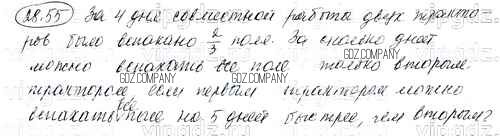 28.55 За 4 дня совместной работы двух тракто-
ров было вспахано 2/3 поля. За сколько дней
можно вспахать все поле только вторым
трактором, если первым трактором можно
вспахать все поле на 5 дней быстрее, чем вторым?
GDZ.COMPANY GDZ.COMPANY GDZ.COMPANY
GDZ.COMPANY GDZ.COMPANY GDZ.COMPANY